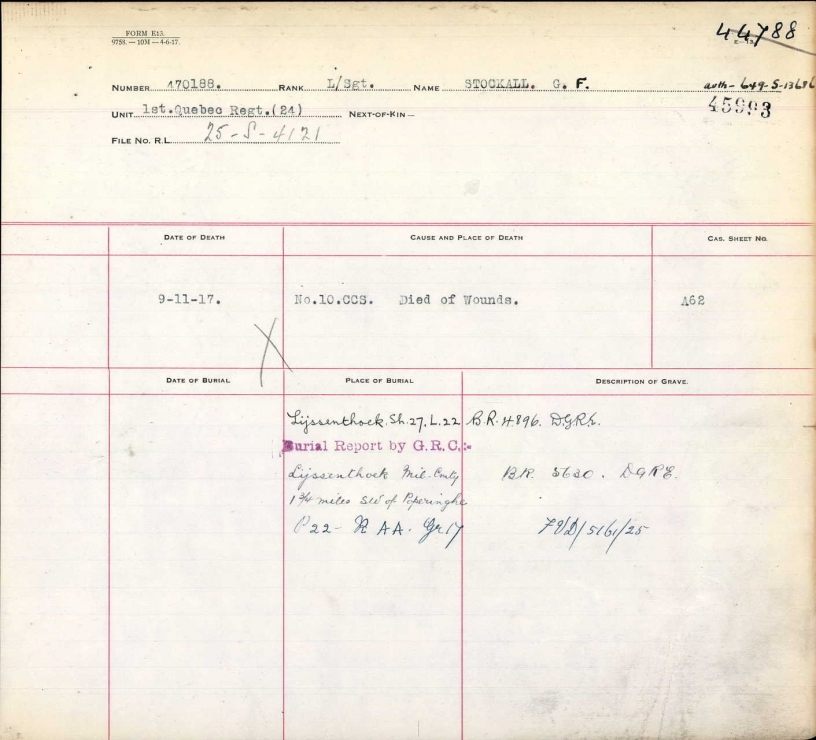 FORM E13.
9758. — 10M — 4-6-17.
44788
E-13.
NUMBER 470188. RANK L/Sgt. NAME STOCKALL. G. F. auth- 649-S-13686
UNIT 1st.Quebec Regt.(24) NEXT-OF-KIN— 45993
FILE NO. R.L. 25-S-4121
DATE OF DEATH CAUSE AND PLACE OF DEATH CAS. SHEET NO.
9-11-17. No.10.CCS. Died of Wounds. A62
DATE OF BURIAL PLACE OF BURIAL DESCRIPTION OF GRAVE.
Lijssenthoek. Sh.27. L.22 B.R. 4896. DGR&.
Burial Report by G.R.C.:-
Lijssenthoek Mil. Cmty B.R. 5630. DGRE.
1¾ miles SW of Poperinghe
P 22- R AA. Gr 17